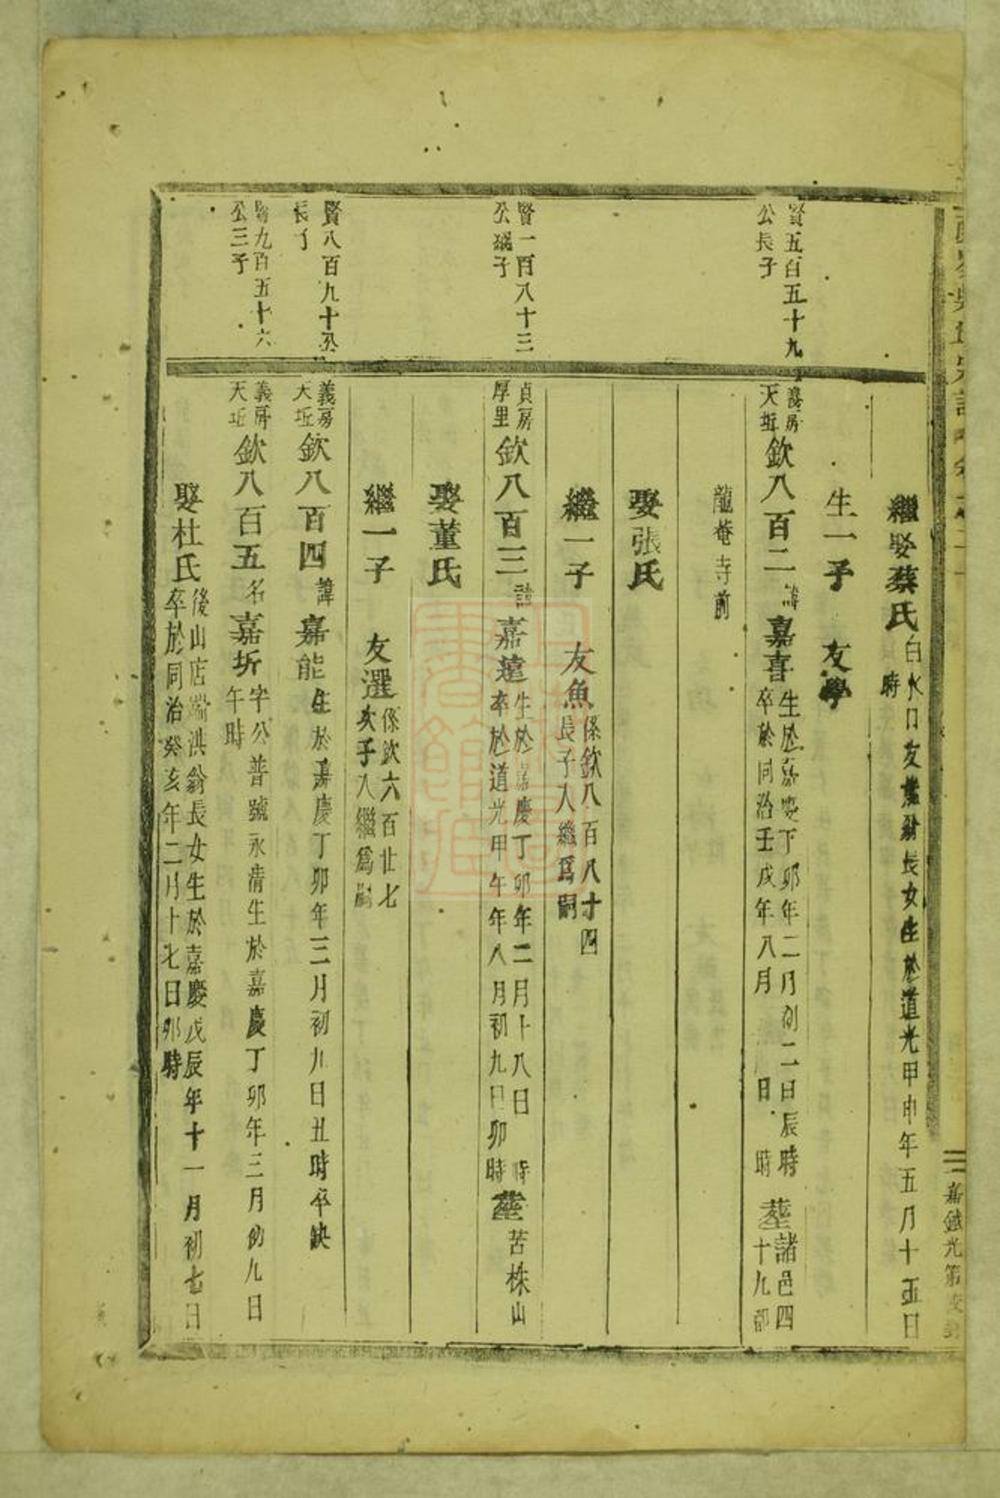 繼娶蔡氏
白水口友翁長女生於道光甲申年五月十五日
時
生一子 友學
賢五百五十九
公長子
義房
天坵
欽八百二
諱
嘉喜
生於嘉慶丁卯年二月初二日辰時
卒於同治壬戌年八月 日 時
塟
諸邑四
十九都
龍菴寺前
娶張氏
繼一子 友魚
係欽八百八十四
長子入繼爲嗣
賢一百八十三
公子
貞房
厚里
欽八百三
諱
嘉遠
生於嘉慶丁卯年二月十八日 時
卒於道光甲午年八月初九日卯時
塟
苦株山
娶董氏
繼一子 友選
係欽六百廿七
次子入繼爲嗣
賢八百九十
長子
義房
天坵
欽八百四
諱
嘉能
生於嘉慶丁卯年三月初八日丑時卒缺
賢九百五十六
公三子
義房
天坵
欽八百五
名
嘉圻
字公普號永清生於嘉慶丁卯年三月初九日
午時
娶杜氏
後山店端洪翁長女生於嘉慶戊辰年十一月初七日
卒於同治癸亥年二月十七日卯時